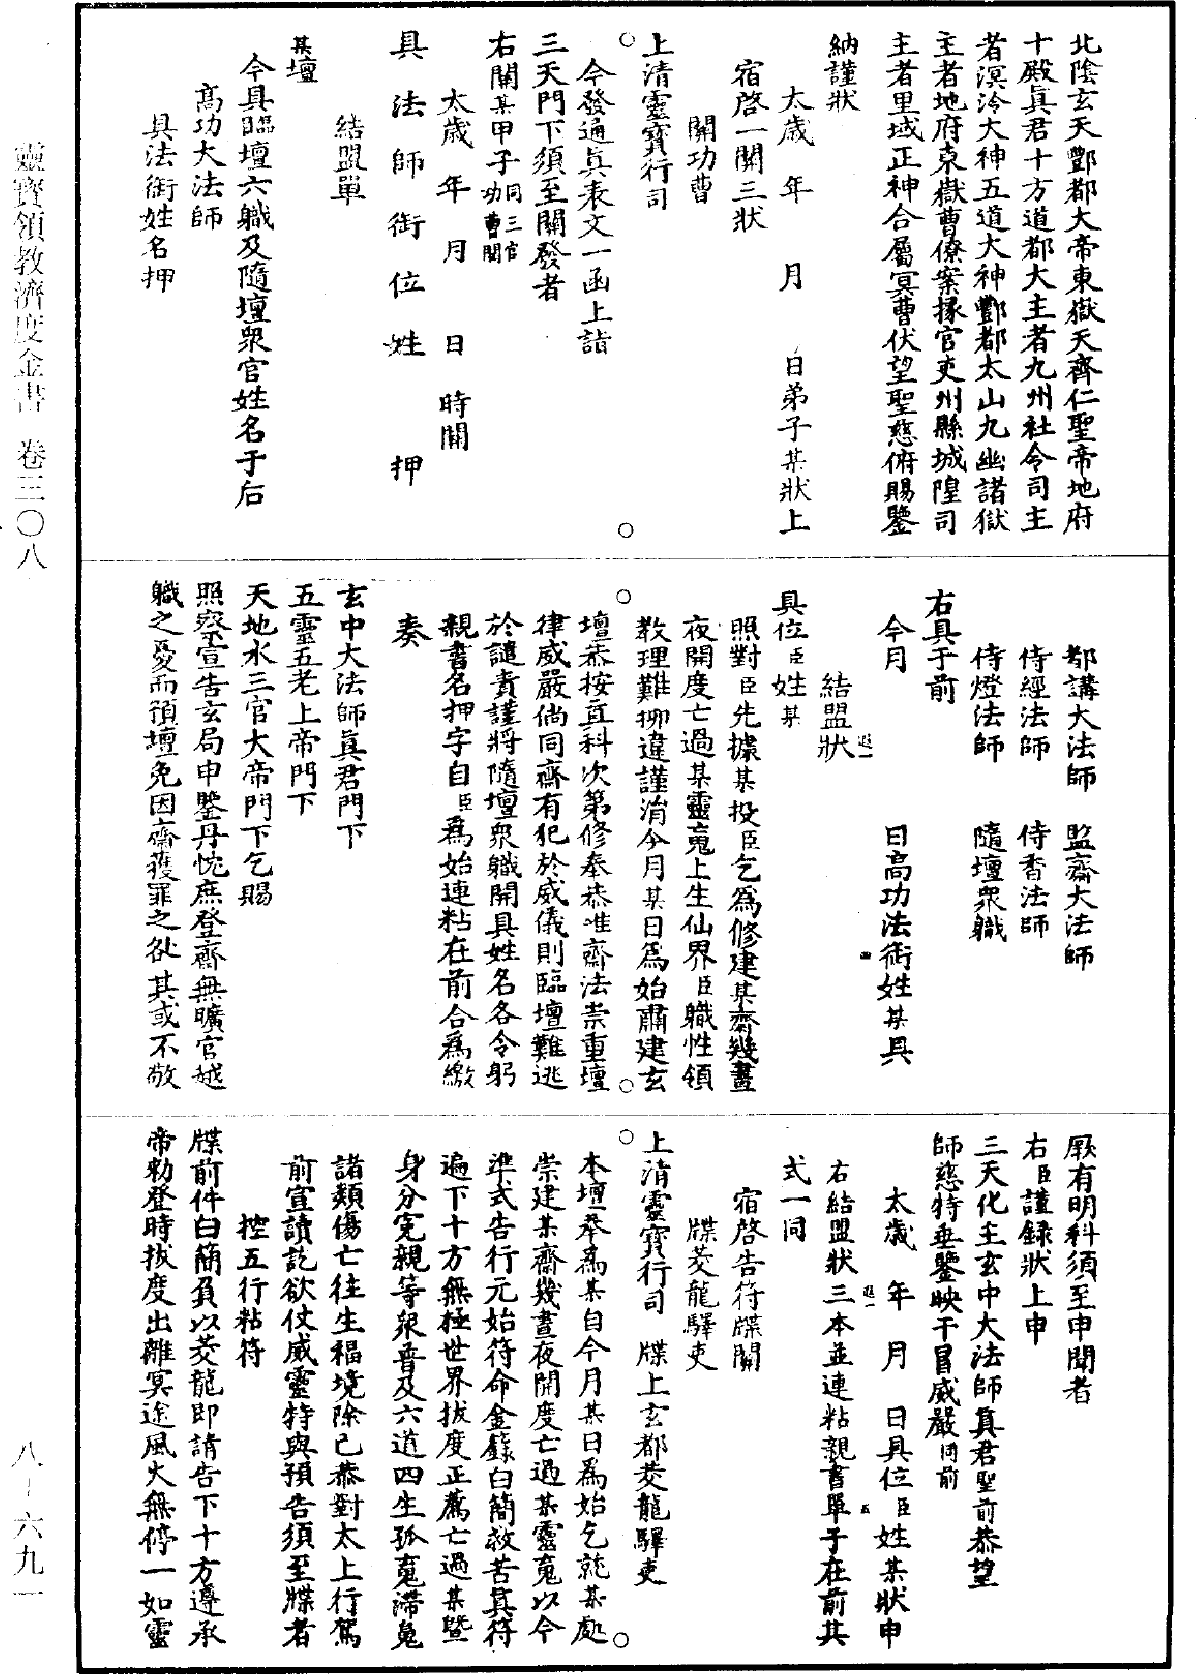 北陰玄天酆都大帝東嶽天齊仁聖帝地府
十殿眞君十方道都大主者九州社令司主
者溟泠大神五道大神酆都太山九幽諸獄
主者地府東嶽曹僚案掾官吏州縣城隍司
主者里域正神合屬冥曹伏望聖慈俯賜鑒
納謹狀
太歲 年 月 日弟子某狀上
宿啓一關三狀
關功曹
上清靈寶行司
今發遣眞表文一函上詣
三天門下須至關發者
右關某甲子同三官功曹關
太歲 年 月 日 時關
具法師銜位姓 押
結盟單
某壇
今具臨壇六職及隨壇衆官姓名于后
高功大法師
具法銜姓名押
都講大法師 監齋大法師
侍經法師 侍香法師
侍燈法師 隨壇衆職
右具于前
今月 日高功法銜姓某具
結盟狀
具位臣姓某
照對臣先據某投臣乞爲修建某齋幾晝
夜開度亡過某靈䰟上生仙界臣職性領
教理難抑違謹涓今月某日爲始肅建玄
壇恭按直科次第修奉恭惟齋法崇重壇
律威嚴倘同齋有犯於威儀則臨壇難逃
於譴責謹將隨壇衆職開具姓名各令躬
親書名押字自臣爲始連粘在前合爲繳
奏
玄中大法師眞君門下
五靈五老上帝門下
天地水三官大帝門下乞賜
照察宣告玄局申鑒丹忱庶登齋無曠官越
職之憂而預壇免因齋獲罪之咎其或不敬
厥有明科須至申聞者
右臣謹錄狀上申
三天化主玄中大法師眞君聖前恭望
師慈特垂鑒映干冒威嚴同前
太歲 年 月 日具位臣姓某狀申
右結盟狀三本並連粘親書單子在前其
式一同
宿啓告符牒關
牒茭龍驛吏
上清靈寶行司 牒上玄都茭龍驛吏
本壇奉爲某自今月某日爲始乞就某處
崇建某齋幾晝夜開度亡過某靈䰟以今
準式告行元始符命金籙白簡救苦眞符
遍下十方無極世界拔度正薦亡過某曁
身分寃親等衆普及六道四生孤䰟滯魄
諸類傷亡往生福境除已恭對太上行駕
前宣讀訖欲仗威靈特與預告須至牒者
控五行粘符
牒前件白簡負以茭龍即請告下十方遵承
帝勑登時拔度出離冥途風火無停一如靈
靈寶領教濟度金書 卷三〇八
八－六九一